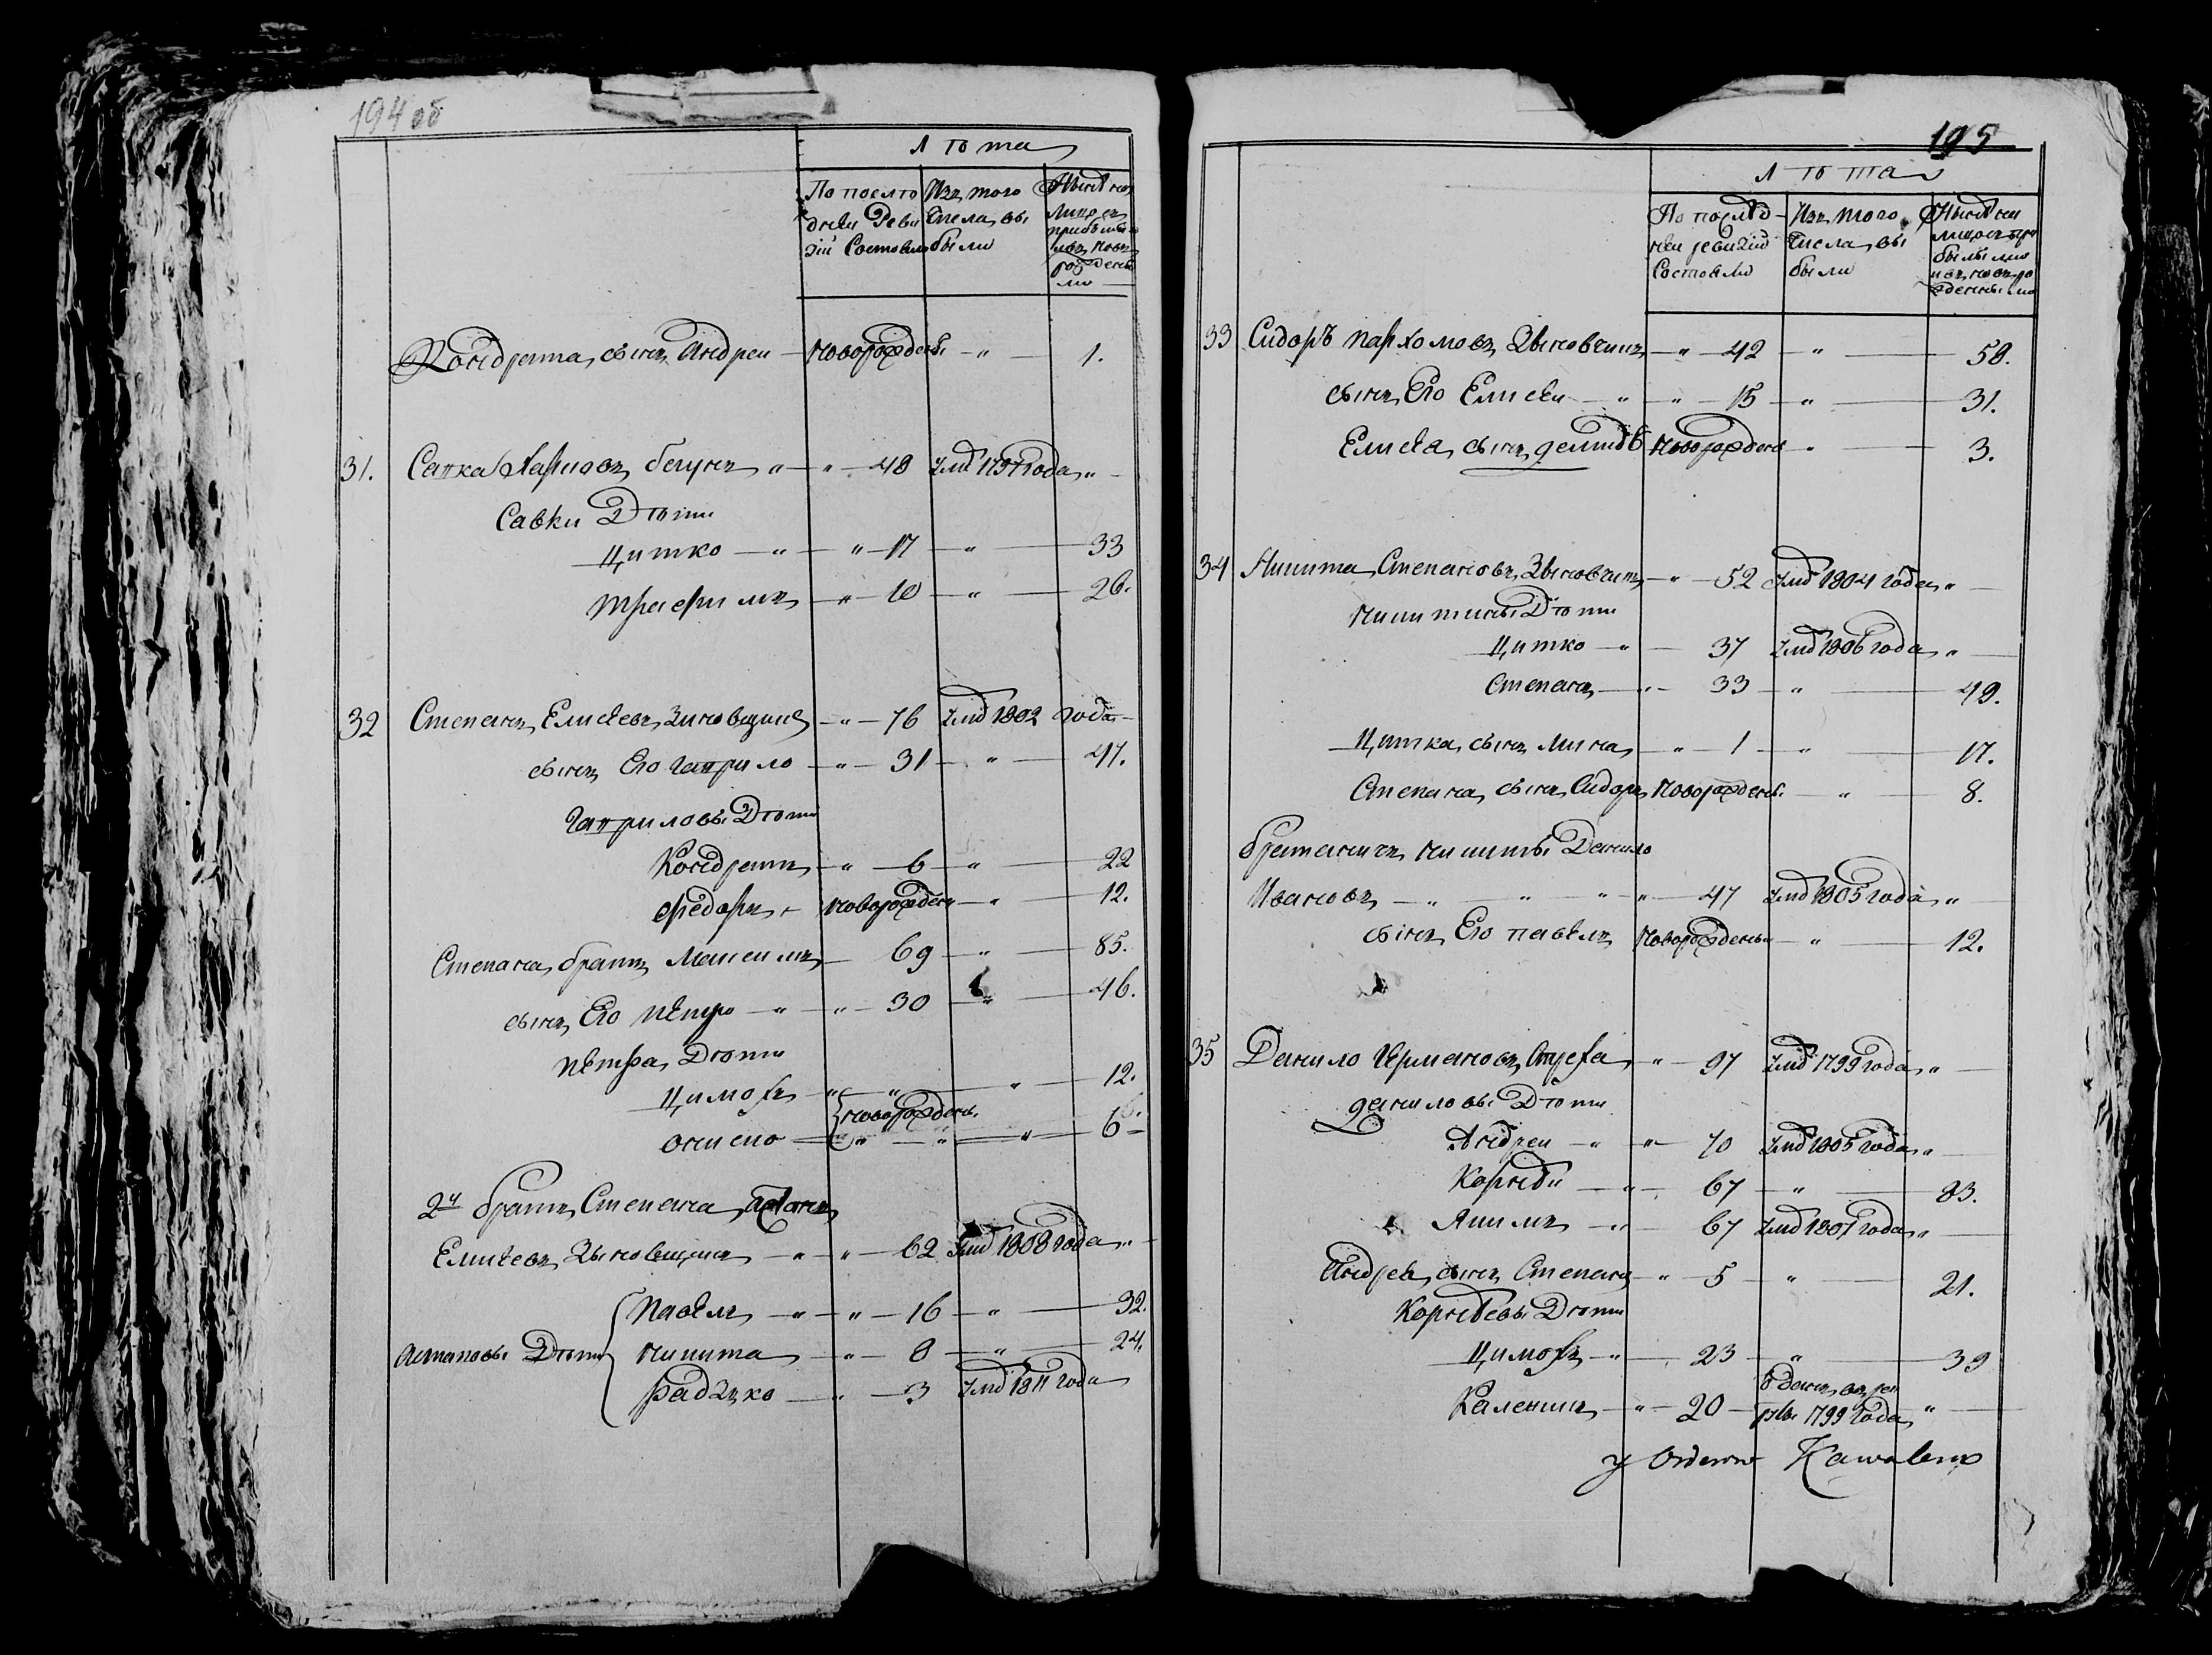 194 об
Лѣта
По последней Ревизіи Состояли
Изъ того Числа выбыли
Нынѣ на лицо съ прибылыми и новорожденными
Кондрата сынъ Андрей — новорожденъ — " — 1.
31. Савка Карповъ бегунъ " — " — 48 Умд 1797 года "
Савки Дѣти
Цитко — " — " — 17 — " — 33
Трафимъ — " — 10 — " — 26.
32 Степанъ Елисѣевъ Зиновщицъ — " — 76 Умд 1802 года
сынъ Его Гаврило — " — 31 — " — 47.
Гавриловы Дѣти
Кондратъ — " — 6 — " — 22
Ѳедоръ — новорожденъ — " — 12.
Степана братъ Максимъ — 69 — " — 85.
сынъ Его пѣтро — " — " — 30 — " — 46.
пѣтра Дѣти
Цимохъ — " — " — " — 12.
новорожденъ.
Ониско — " — " — " — 6
2й братъ Степана Астапъ
Елисѣевъ Зыновщицъ — " — " — 62 Умд 1808 года "
Павѣлъ — " — " — 16 — " — 32.
Астаповы Дѣти Никита — " — 8 — " — 24.
Радзко — " — 3 Умд 1811 года
195
Лѣта
По послѣдней ревизіи Состояли
Изъ того Числа выбыли
Нынѣ на лицо съ прибылыми и новорожденными
33 Сидоръ пархомовъ Зыновчицъ — " — 42 — " — 58.
сынъ Его Елисѣй — " — " — 15 — " — 31.
Елисѣя сынъ демидъ новорожденъ " — 3.
34 Никита Степановъ Зыновчицъ — " — 52 Умд 1804 года "
никитины Дѣти
Цитко — " — 37 Умд 1806 года "
Степанъ — " — 33 — " — 49.
Цитка сынъ Мина — " — 1 — " — 17.
Степана сынъ Сидоръ новорожденъ. — " — 8.
братаничъ никиты Данило
Ивановъ — " — " " " — 47 Умд 1805 года "
сынъ Его павѣлъ новорожденъ — " — 12.
35 Данило Германовъ " — 97 Умд 1799 года "
даниловы Дѣти
Андрей — " " — 70 Умд 1805 года "
Корнѣй — " — 67 — " — 83.
Якимъ — " — 67 Умд 1807 года "
Андрея сынъ Степанъ — " — 5 — " — 21.
Корнѣевы Дѣти
Цимохъ — " — 23 — " — 39
Каленикъ — " — 20 — Отданъ въ рекруты 1799 года "
y Orderow Kawaler